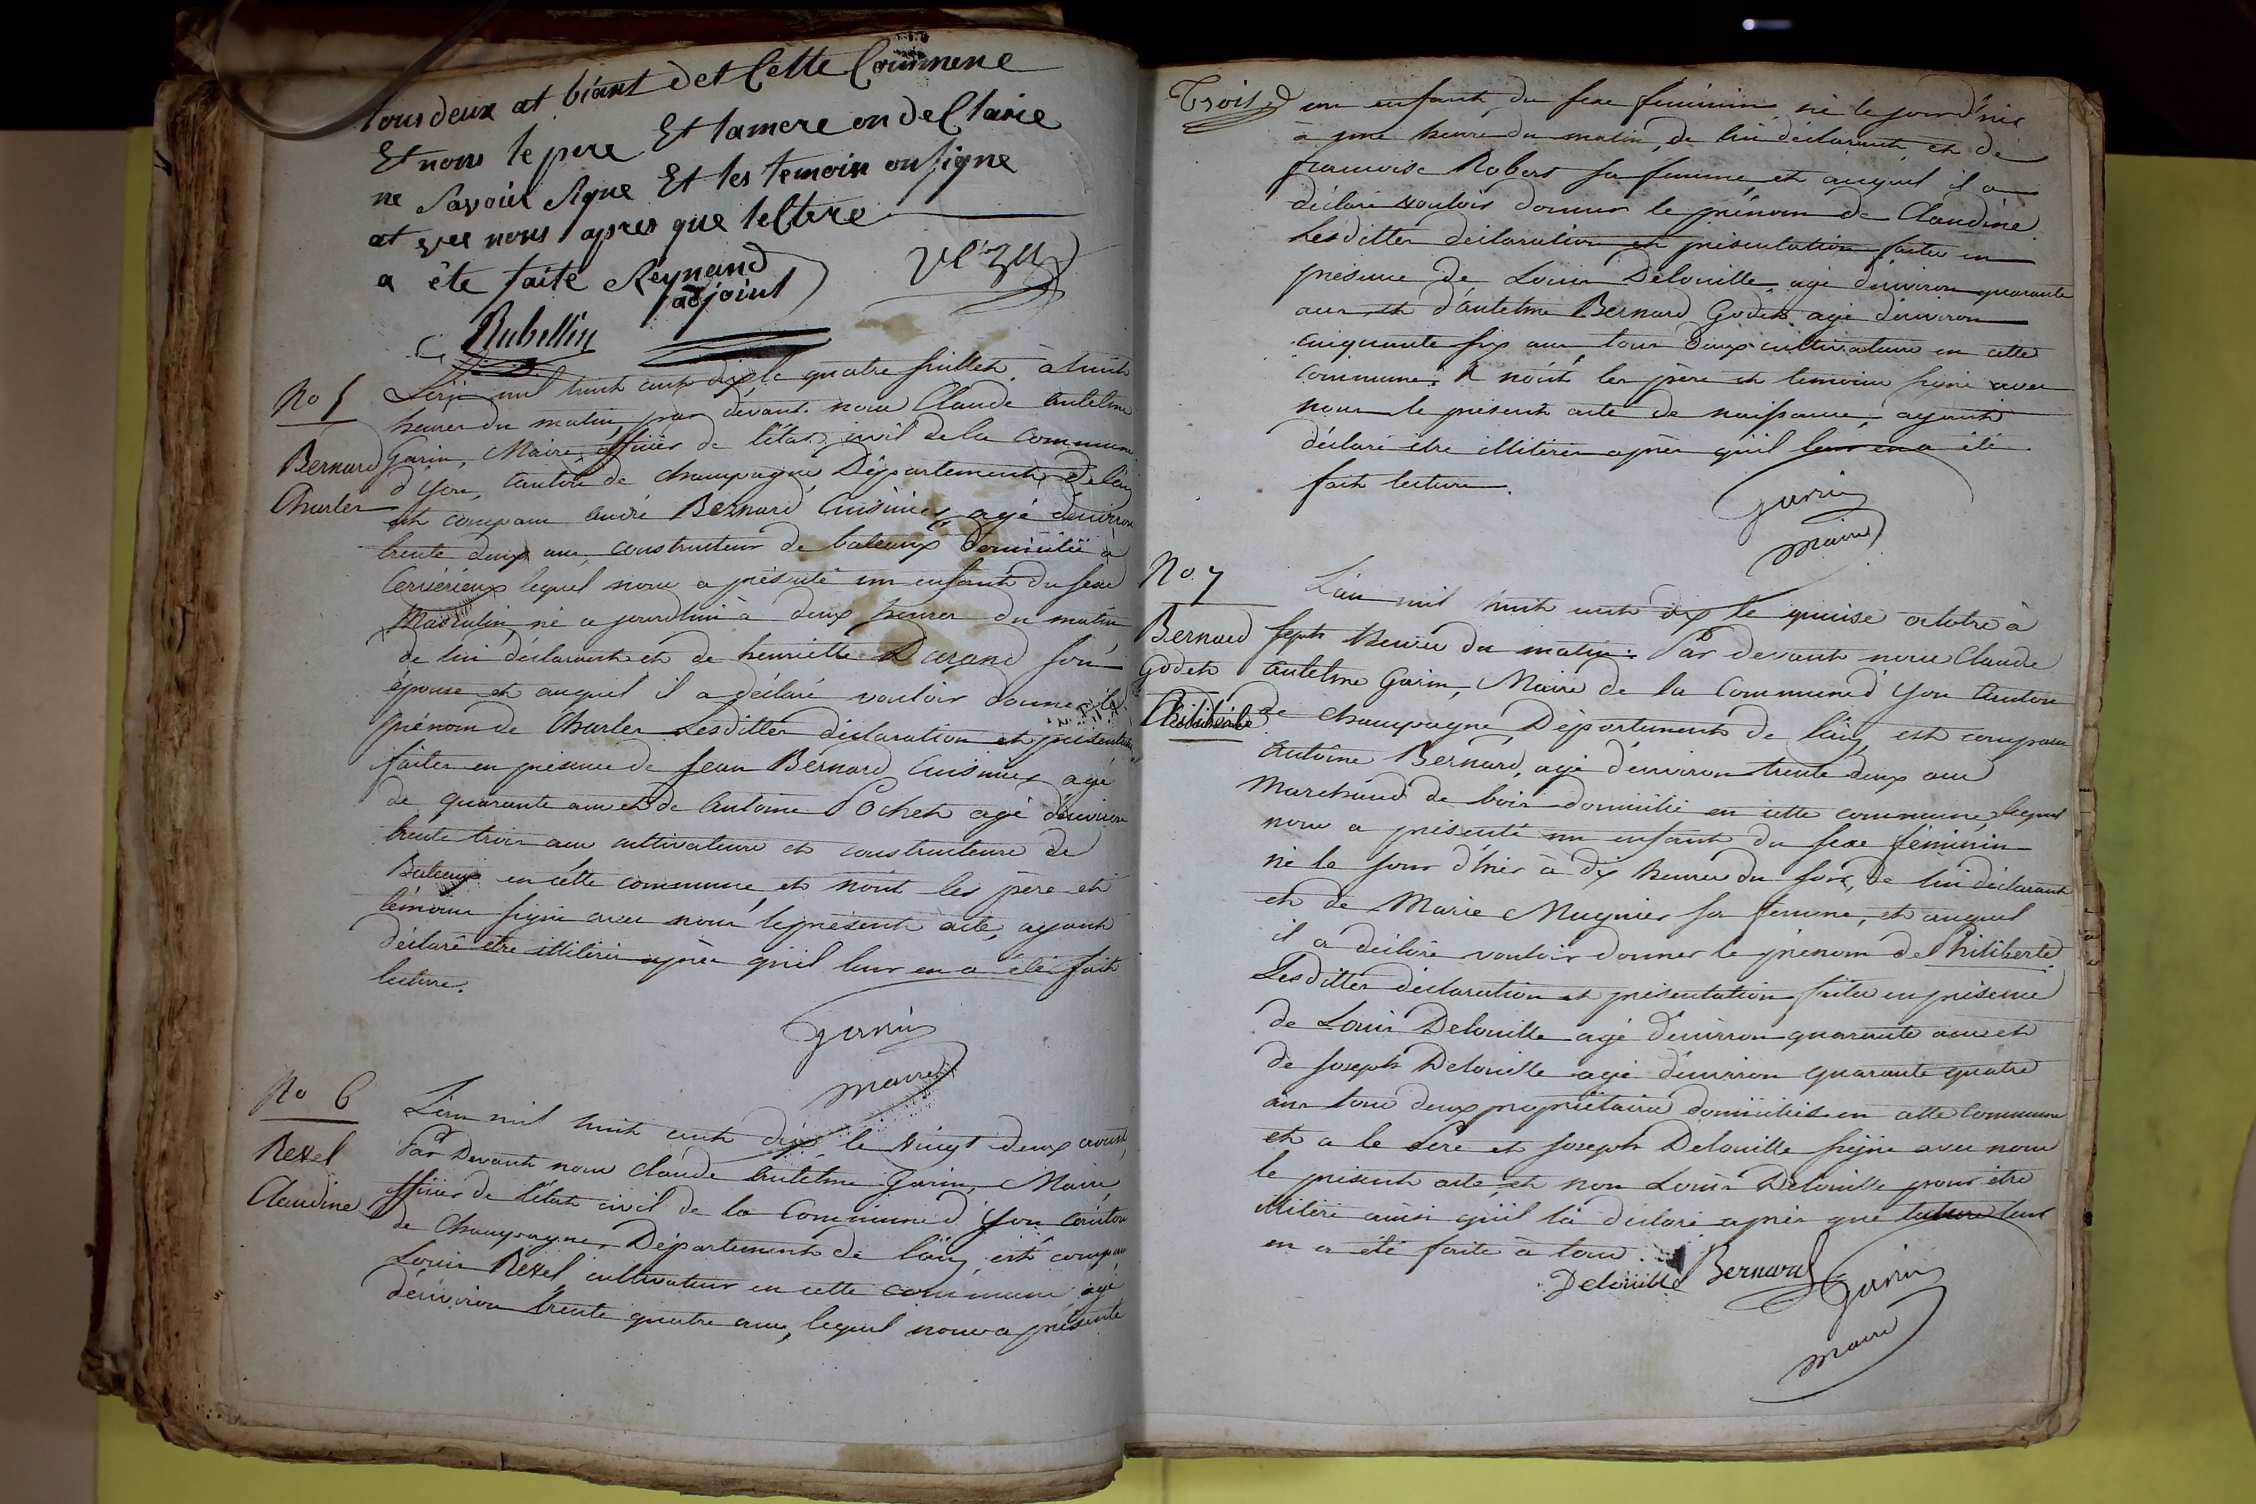 tous deux at biant det Cette Commene
Et nous le pere Et la mere on de Clarie
ne Savoir Signe Et les temoin on signe
at vec nous apres que lecture
a ête faite Reynand
adjoint
Vézu
Rubellin
No 5
Bernard
Charles
L'an mil huit cent dix le quatre juillet, à huit
heures du matin, par devant nous Claude antelme
Garin, Maire officier de l'état civil de la Commune
d'Yon, canton de champagne Département de l'ain
est comparu andré Bernard Cuisinier agé d'environ
trente deux ans, constructeur de bateaux domicilié à
lequel nous a présenté un enfant du sexe
Masculin, né ce jourdhui à deux heures du matin
de lui déclarant et de henriette Durand son
épouse et auquel il a déclaré vouloir donner le
prénom de Charles Lesdittes déclaration et présentation
faites en présence de Jean Bernard Cuisinier agé
de quarante ans et de Antoine Pochet agé d'environ
trente trois ans cultivateurs et constructeurs de
Bateaux en cette commune, et n'ont les père et
témoins signé avec nous le présent acte, ayant
déclaré être illitérés après qu'il leur en a été fait
lecture.
Garin
maire
No 6
Rexel
Claudine
L'an mil huit cent dix, le vingt deux aoust,
Par Devant nous Claude antelme Garin, Maire
officier de l'état civil de la Commune d'Yon canton
de Champagne, Département de l'ain, est comparu
Louis Rexel cultivateur en cette commune agé
d'environ trente quatre ans, lequel nous a présenté
un enfant du sexe féminin né le jour d'hier
à une heure du matin, de lui déclarant et de
francoise Robert sa femme et auquel il a
déclaré vouloir donner le prénom de Claudine.
Lesdittes déclaration et présentation faites en
présence de Louis Delouille, agé d'environ quarante
ans et d'antelme Bernard Godet agé d'environ
cinquante six ans, tous deux cultivateurs en cette
commune. et n'ont les père et temoins signé avec
nous le présent acte de naissance, ayant
déclaré être illitérés après qu'il leur en a été
fait lecture.
Garin
maire
No 7
Bernard
Godet
Philiberte
L'an mil huit cent dix le quinze octobre à
sept heures du matin. Par devant nous Claude
antelme Garin, Maire de la Commune d'Yon Canton
de champagne Département de l'ain, est comparu
Antoine Bernard, agé d'environ trente deux ans
Marchand de bois domicilié en cette commune, lequel
nous a présenté un enfant du sexe féminin
né le jour d'hier à dix heures du soir, de lui déclarant
et de Marie Mugnier sa femme, et auquel
il a déclaré vouloir donner le prénom de Philiberte.
Lesdittes déclaration et présentation faites en présence
de Louis Delouille agé d'environ quarante ans et
de Joseph Delouille agé d'environ quarante quatre
ans tous deux propriétaires domiciliés en cette Commune
et a le Père et Joseph Delouille signé avec nous
le présent acte, et non Louis Delouille pour être
illitéré ainsi qu'il l'a déclaré après que lecture leur
en a été faite à tous.
Delouille Bernard Garin
maire